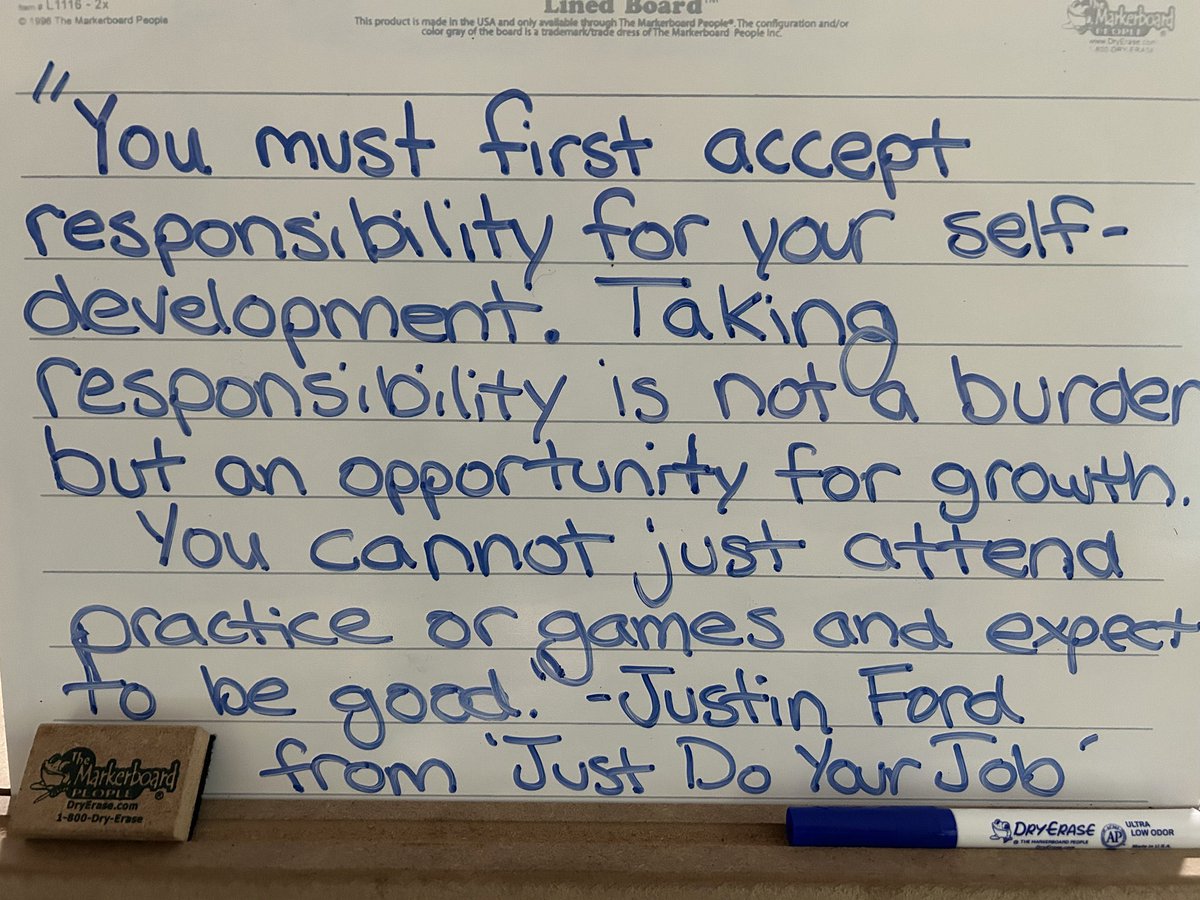 Item # L1116 - 2x
© 1996 The Markerboard People
Lined Board™
This product is made in the USA and only available through The Markerboard People®. The configuration and/or
color gray of the board is a trademark/trade dress of The Markerboard People Inc.
The
Markerboard
PEOPLE®
www.DryErase.com
800-DRY-ERASE
"You must first accept
responsibility for your self-
development. Taking
responsibility is not a burden
but an opportunity for growth.
You cannot just attend
practice or games and expect
to be good." -Justin Ford
from 'Just Do Your Job'
The
Markerboard
PEOPLE®
DryErase.com
1-800-Dry-Erase
DRYERASE
© THE MARKERBOARD PEOPLE
DryErase.com
AP
ULTRA
LOW ODOR
Made in U.S.A.